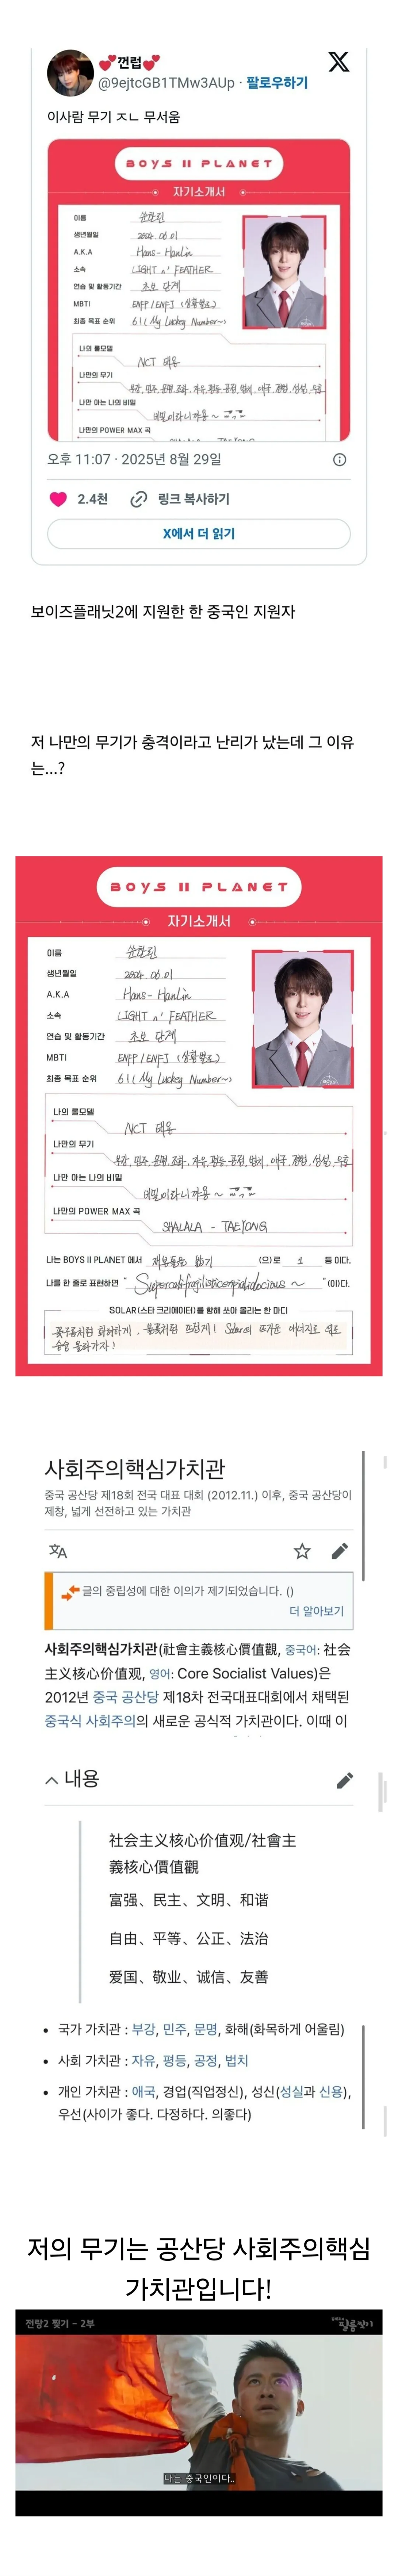 💕깬럽💕
@9ejtcGB1TMw3AUp · 팔로우하기
이사람 무기 ㅈㄴ 무서움
BOYS II PLANET
자기소개서
이름 순한린
생년월일 2004. 06. 01
A.K.A Hans-Hanlin
소속 LIGHT n' FEATHER
연습 및 활동기간 초보 단계
MBTI ENFP/ENFJ (상황별로)
최종 목표 순위 6! (My Lucky Number~)
나의 롤모델
NCT 태용
나만의 무기
부강, 민주, 문명, 조화, 자유, 평등, 공정, 법치, 애국, 경업, 성실, 우호
나만 아는 나의 비밀
비밀이라니까용~
나만의 POWER MAX 곡
오후 11:07 · 2025년 8월 29일
2.4천 링크 복사하기
X에서 더 읽기
보이즈플래닛2에 지원한 한 중국인 지원자
저 나만의 무기가 충격이라고 난리가 났는데 그 이유
는...?
BOYS II PLANET
자기소개서
이름 순한린
생년월일 2004. 06. 01
A.K.A Hans-Hanlin
소속 LIGHT n' FEATHER
연습 및 활동기간 초보 단계
MBTI ENFP/ENFJ (상황별로)
최종 목표 순위 6! (My Lucky Number~)
나의 롤모델
NCT 태용
나만의 무기
부강, 민주, 문명, 조화, 자유, 평등, 공정, 법치, 애국, 경업, 성실, 우호
나만 아는 나의 비밀
비밀이라니까용~
나만의 POWER MAX 곡
SHALALA - TAEYONG
나는 BOYS II PLANET 에서 (으)로 1 등 이다.
나를 한 줄로 표현하면 " Supercalifragilisticexpialidocious ~ " (이)다.
SOLAR(스타 크리에이터)를 향해 쏘아 올리는 한 마디
꽃구름처럼 화려하게, 불꽃처럼 뜨겁게! Solar의 뜨거운 에너지로 위로
슝슝 올라가자!
사회주의핵심가치관
중국 공산당 제18회 전국 대표 대회 (2012.11.) 이후, 중국 공산당이
제창, 넓게 선전하고 있는 가치관
글의 중립성에 대한 이의가 제기되었습니다. ()
더 알아보기
사회주의핵심가치관(社會主義核心價值觀, 중국어: 社会
主义核心价值观, 영어: Core Socialist Values)은
2012년 중국 공산당 제18차 전국대표대회에서 채택된
중국식 사회주의의 새로운 공식적 가치관이다. 이때 이
내용
社会主义核心价值观/社會主
義核心價值觀
富强、民主、文明、和谐
自由、平等、公正、法治
爱国、敬业、诚信、友善
• 국가 가치관 : 부강, 민주, 문명, 화해(화목하게 어울림)
• 사회 가치관 : 자유, 평등, 공정, 법치
• 개인 가치관 : 애국, 경업(직업정신), 성신(성실과 신용),
우선(사이가 좋다. 다정하다. 의좋다)
저의 무기는 공산당 사회주의핵심
가치관입니다!
전랑2 찢기 - 2부
필름찢기
나는 중국인이다..